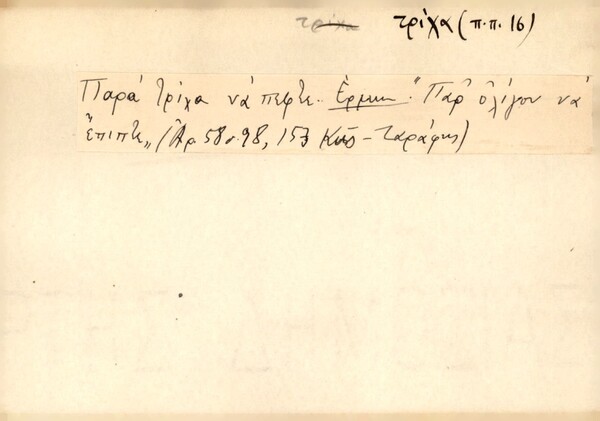 τρίχα τρίχα (π.π. 16)
Παρά τρίχα νά πέφτε. Ἑρμην. "Παρ' ὀλίγον νά
ἔπιπτε„ (Ἀρ 58 σ. 98, 153 Κῶς - Ταράφης)